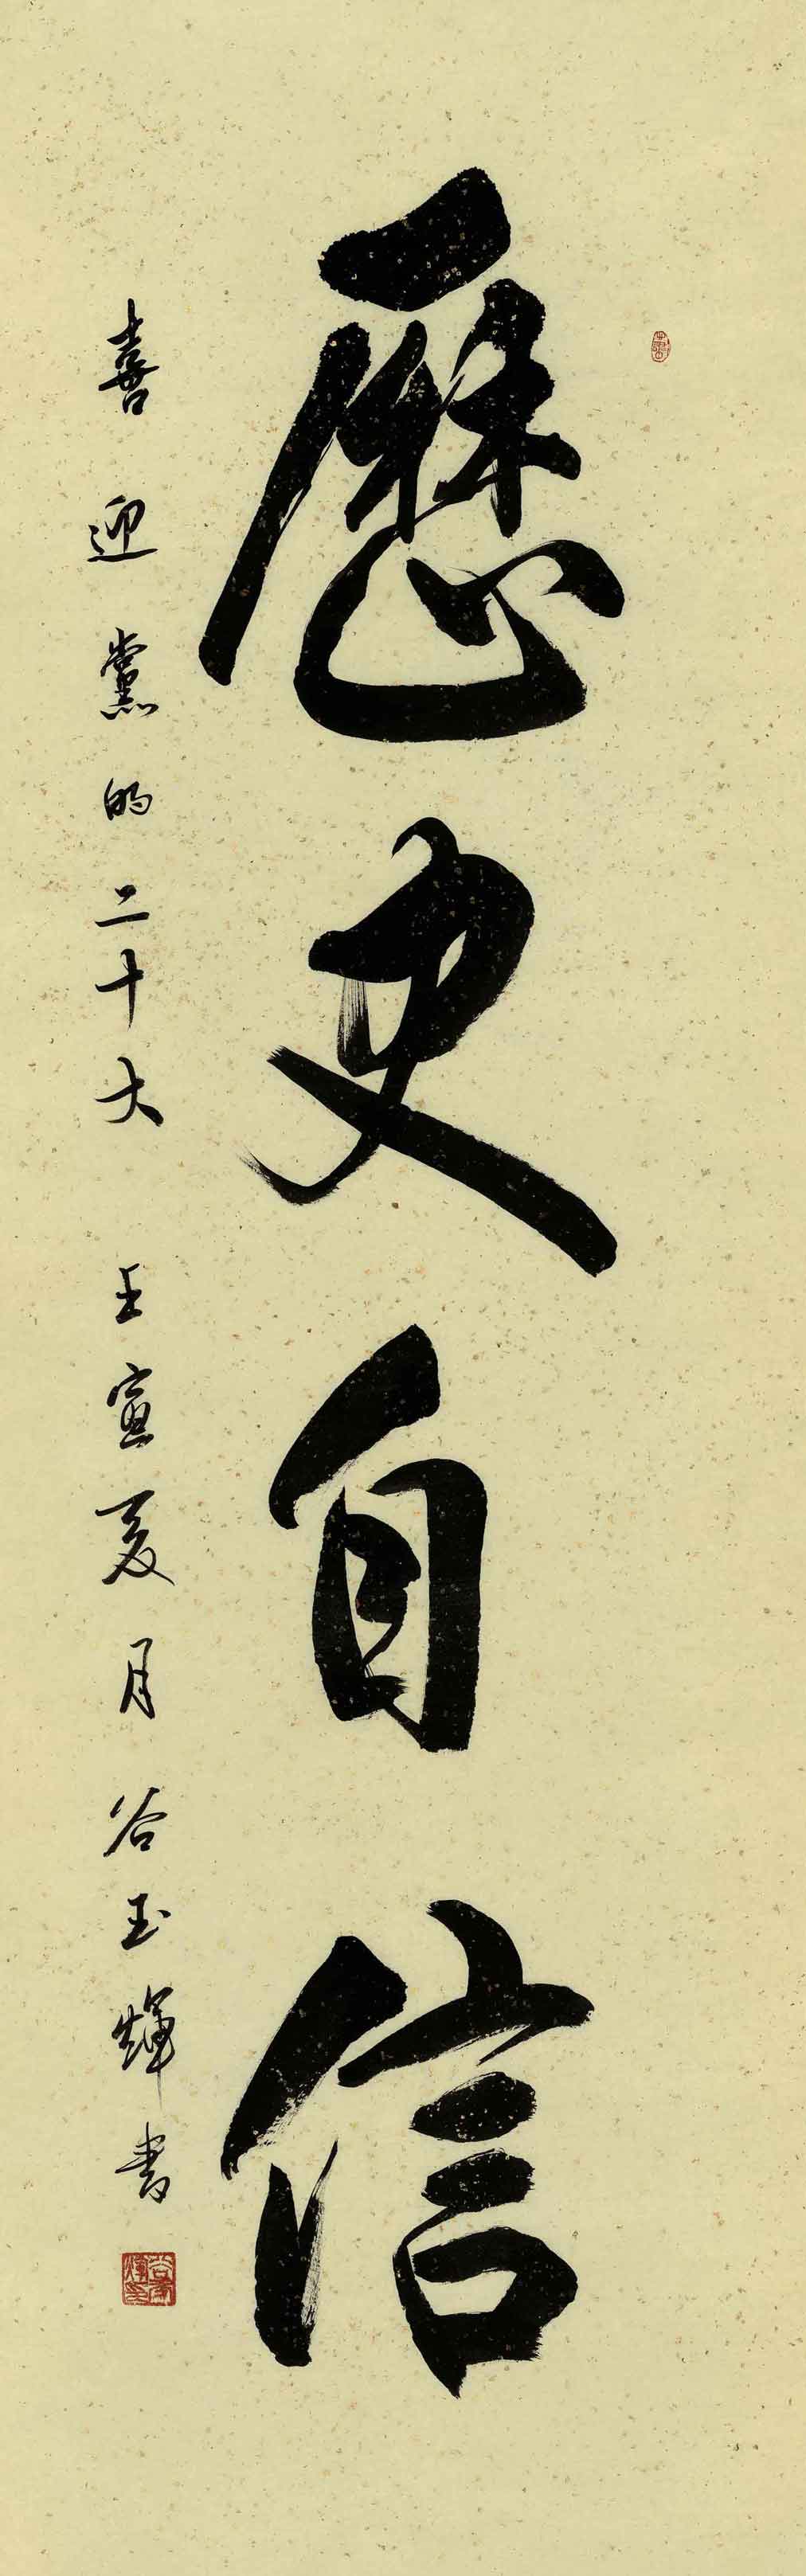 歷史自信
喜迎黨的二十大 壬寅夏月 谷玉輝書